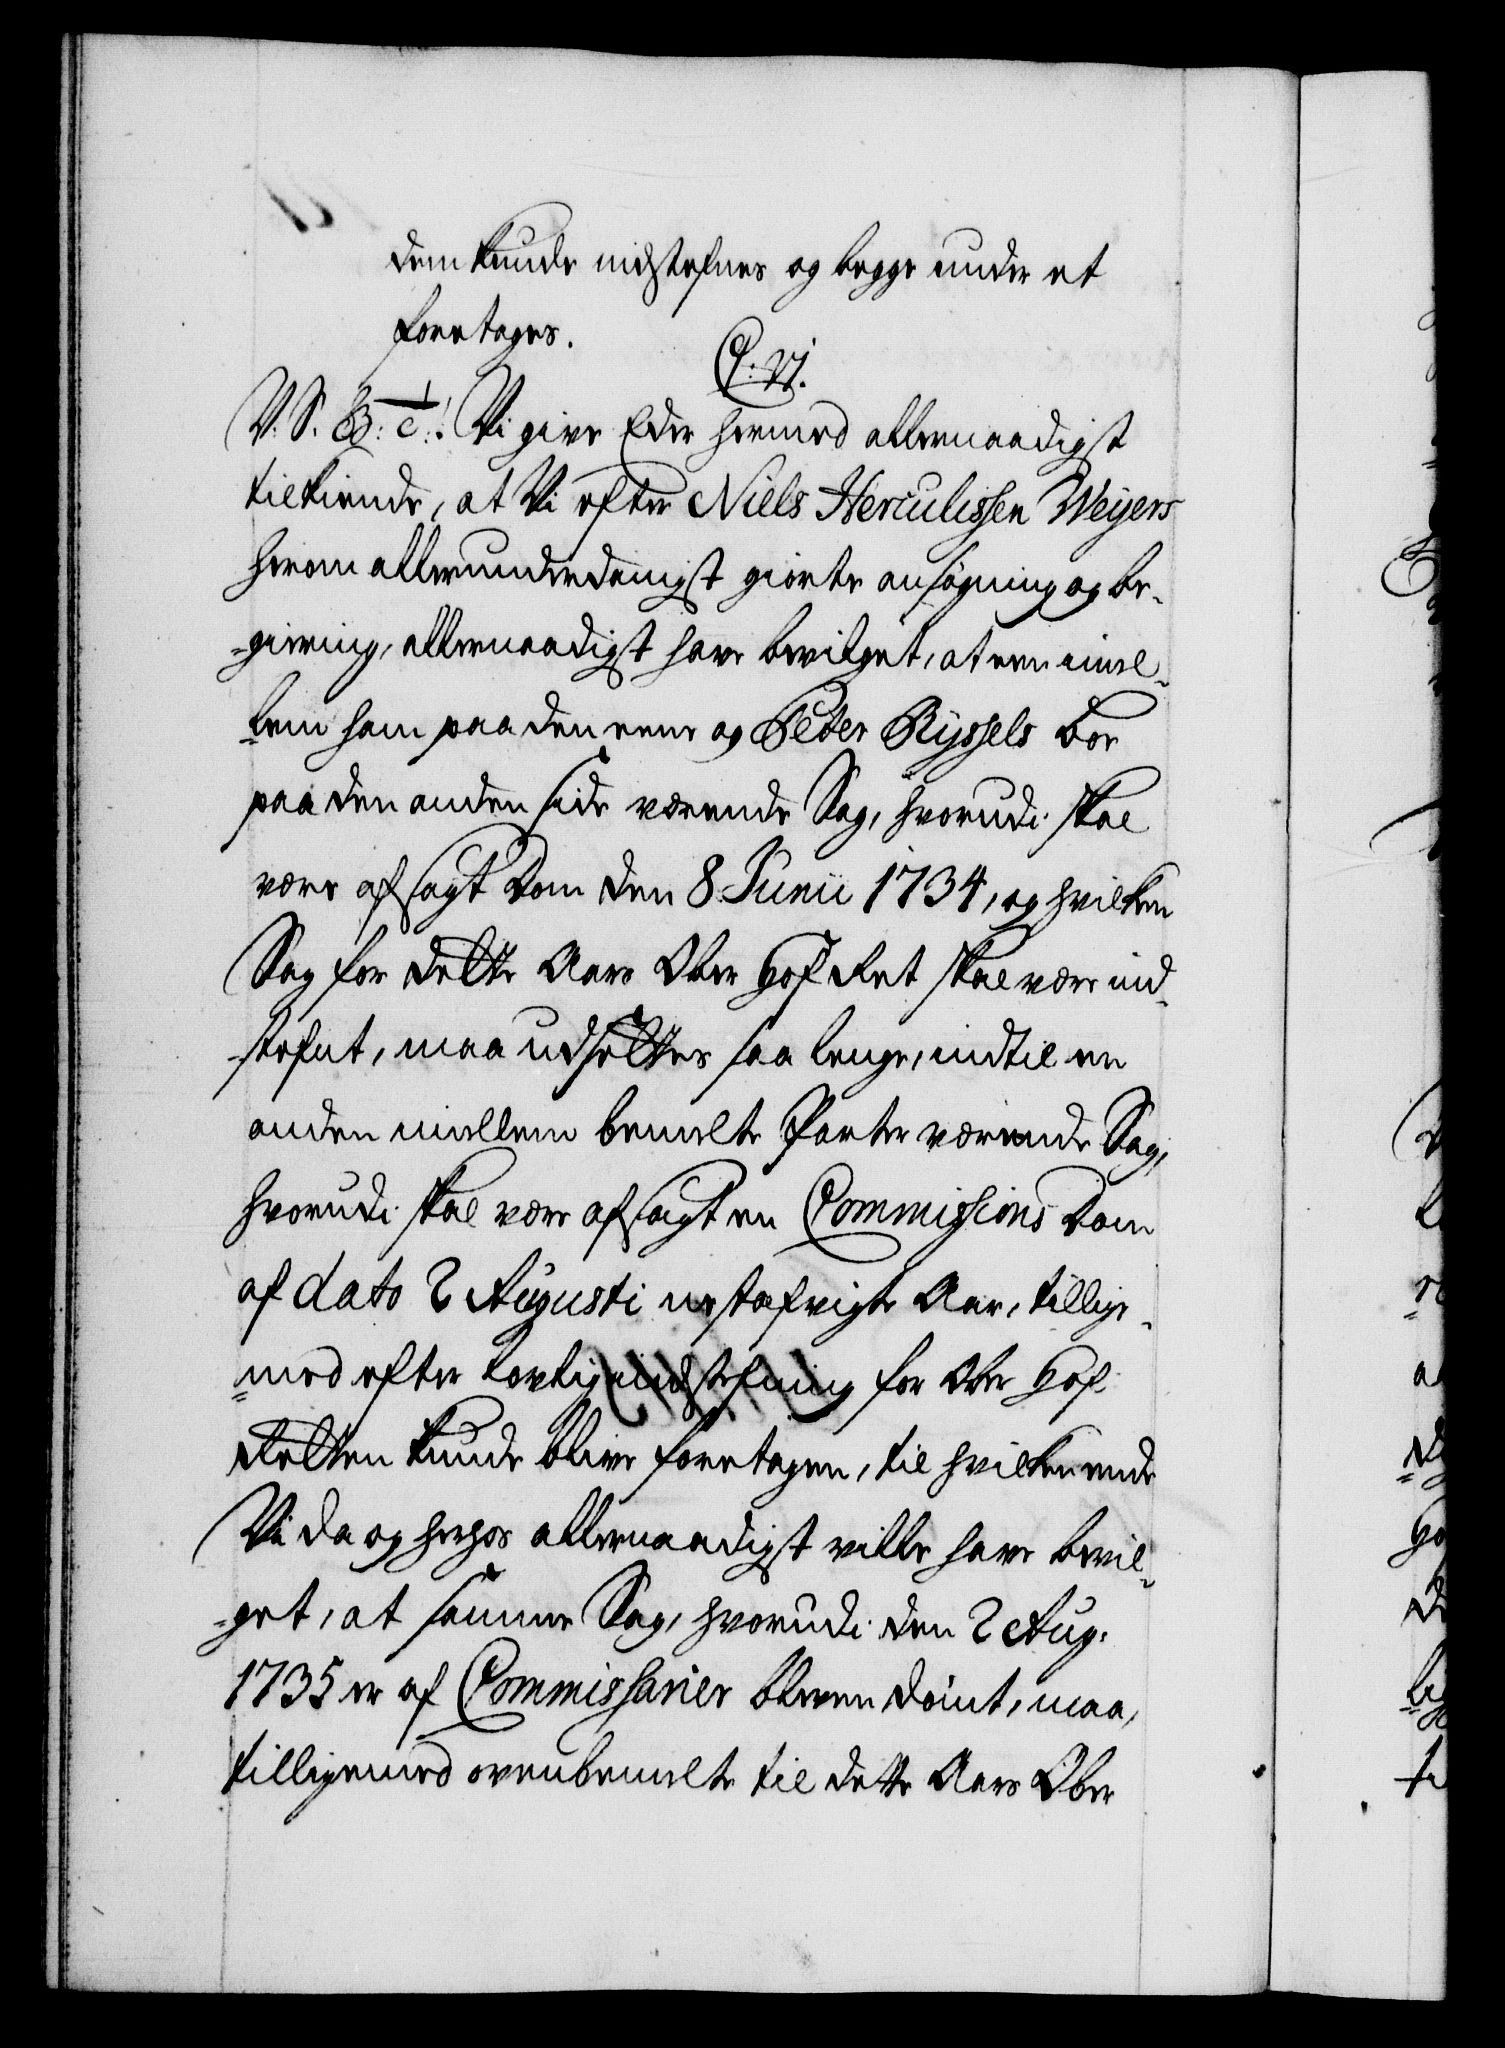 dem kunde indstefnes og begge under et
foretages.
C: VI.
V. S. G: T:. Vi give Eder hermed allernaadigst
tilkiende, at Vi efter Niels Herculissen Weyers
herom allerunderdanigst giorte ansøgning og be-
-giering, allernaadigst have bevilget, at een imel-
-lem ham paa den eene og Peder Ryssels Boe
paa den anden side værende Sag, hvorudi skal
være afsagt Dom den 8 Junii 1734, og hvilken
Sag for dette Aars Ober Hof Ret skal være ind-
-stefnt, maa udsettes saa lenge, indtil een
anden imellem bemelte Parter værende Sag,
hvorudi skal være afsagt en Commissions Dom
af dato 2 Augusti nestafvigte Aar, tillige-
-med efter Lovlig indstefning for Ober Hof
Retten kunde blive foretagen, til hvilken ende
Vi da og herhos allernaadigst ville have bevil-
-get, at samme Sag, hvorudi den 2 Aug:
1735 er af Commissarier bleven dømt, maa,
tilligemed ovenbemelte til dette Aars Ober